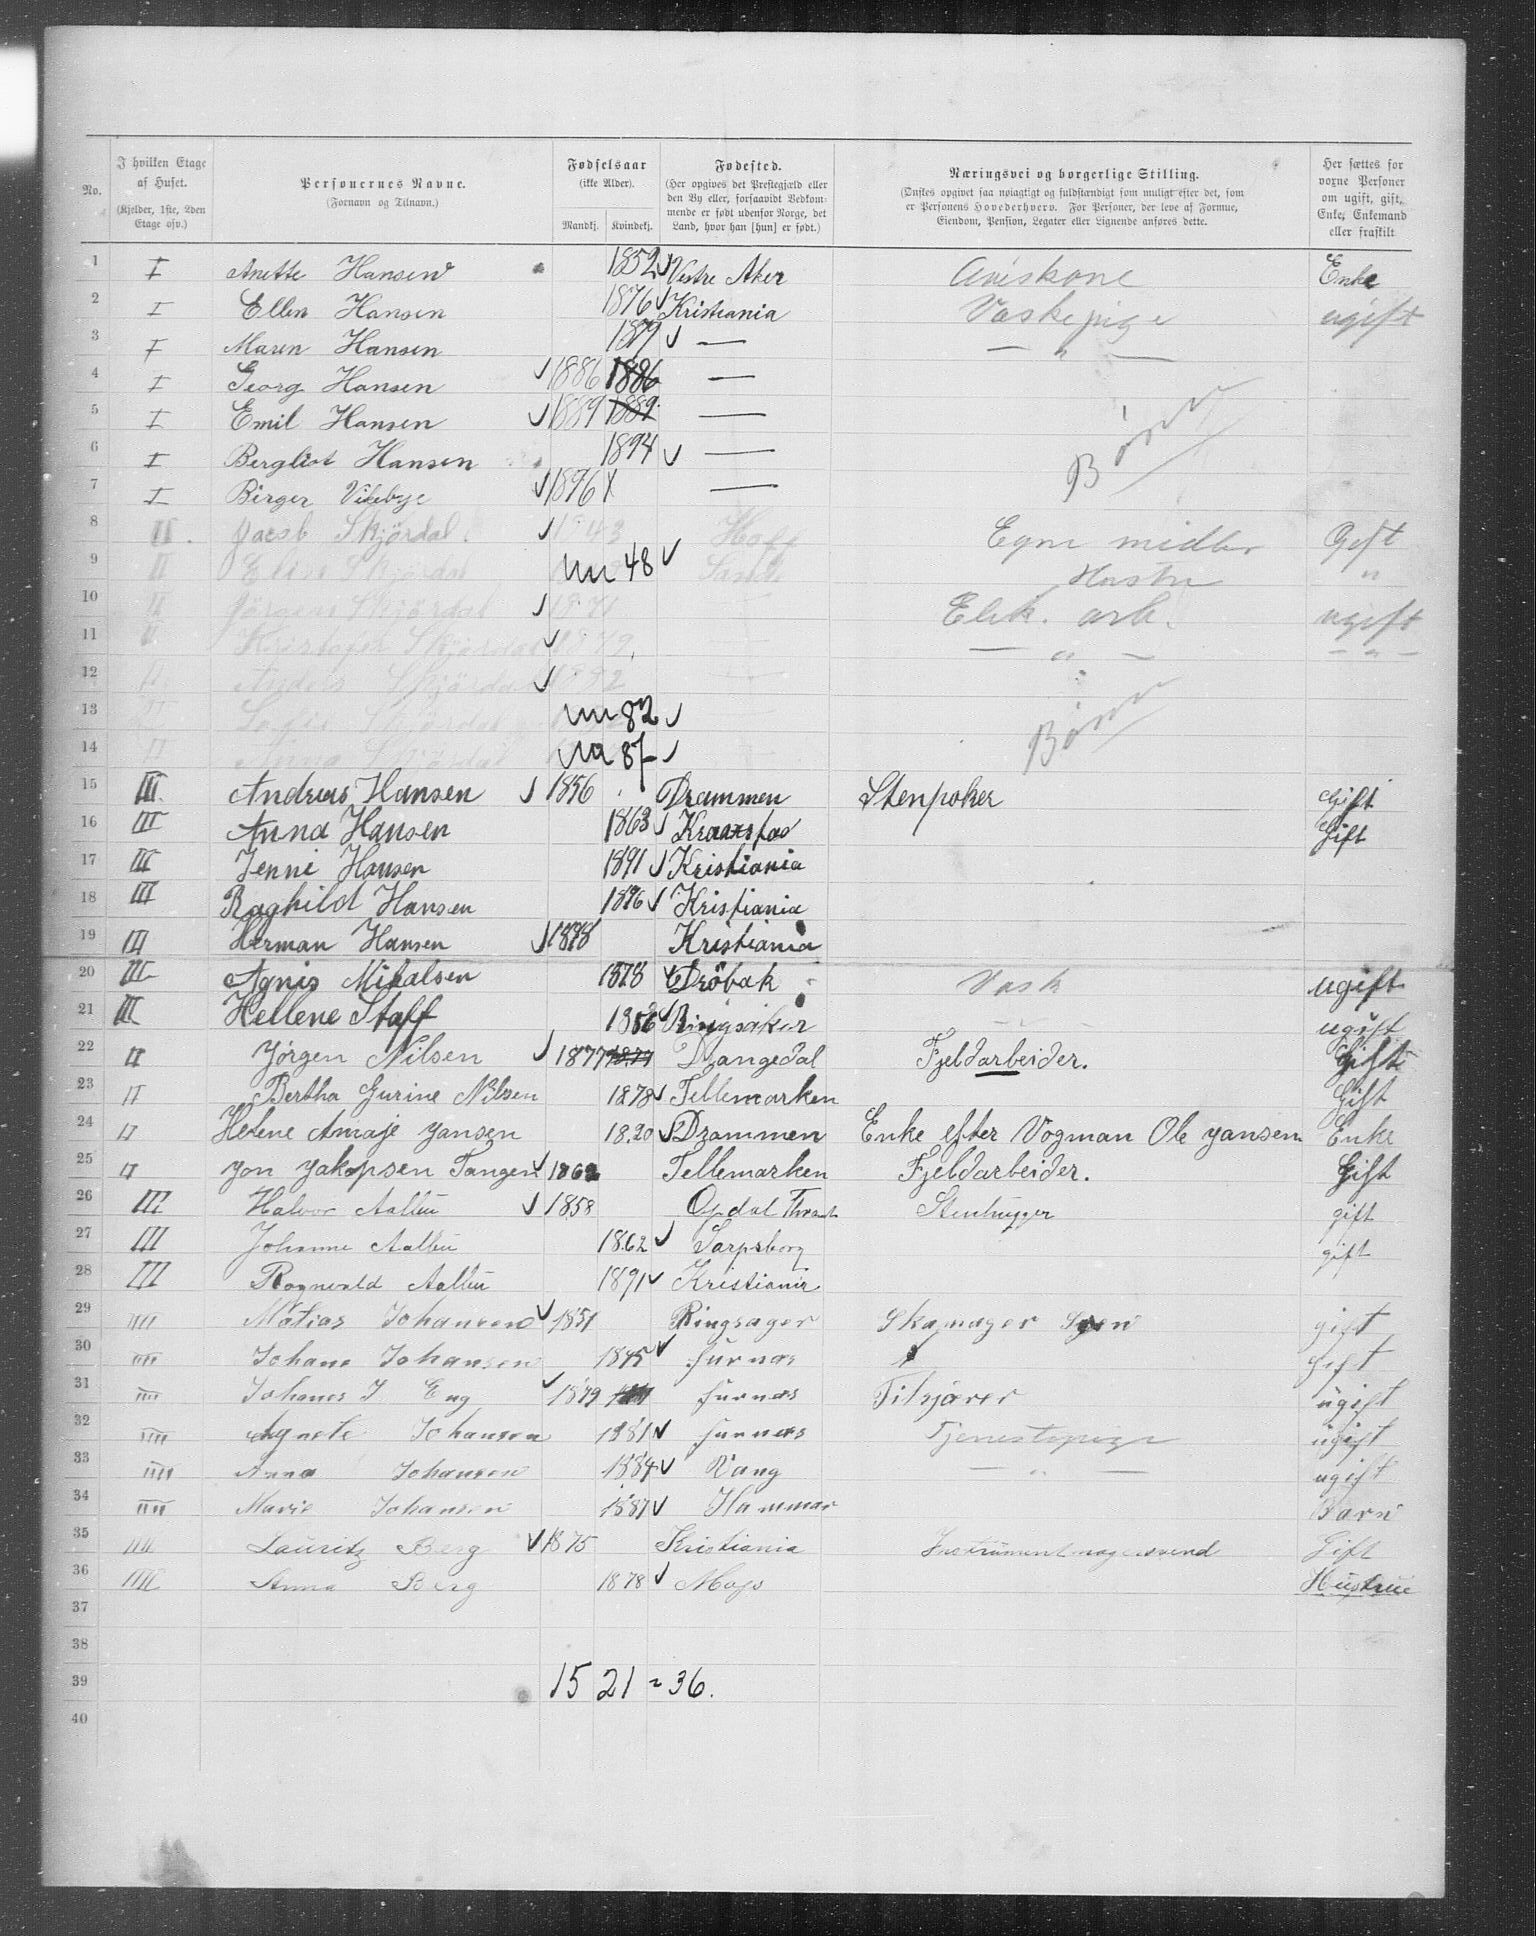 No. | I hvilken Etage af Huset. (Kjelder, 1ste, 2den Etage osv.) | Personernes Navne. (Fornavn og Tilnavn.) | Fødselsaar (ikke Alder). Mandkj. Kvindekj. | Fødested. (Her opgives det Prestegjæld eller den By eller, forsaavidt Vedkommende er født udenfor Norge, det Land, hvor han [hun] er født.) | Næringsvei og borgerlige Stilling. (Ønskes opgivet saa nøiagtigt og fuldstændigt som muligt efter det, som er Personens Hovederhverv. For Personer, der leve af Formue, Eiendom, Pension, Legater eller Lignende anføres dette. | Her sættes for voxne Personer om ugift, gift, Enke, Enkemand eller fraskilt
1 I Anette Hansen 1852 ✓ Vestre Aker Aviskone Enke
2 I Ellen Hansen 1876 ✓ Kristiania Vaskepige ugift
3 I Maren Hansen 1879 ✓ — — " —
4 I Georg Hansen ✓ 1886 1886 —
5 I Emil Hansen ✓ 1889 1889 — Børn
6 I Bergliot Hansen 1894 ✓ —
7 I Birger ✓ 1896 X —
8 II. Jacob Skjördal ✓ 1843 Hoff Egne midler Gift
9 II Elise Skjördal 48 ✓ Sande Hustru "
10 II Jörgen Skjördal ✓ 1871 Elek. arb. ugift
11 II Kristofer Skjördal ✓ 1879 — " — — " —
12 II Anders Skjördal ✓ 1892
13 II Skjördal 82 ✓ Børn
14 II Anna Skjördal ✓
15 III Andreas Hansen ✓ 1856 Drammen Stenpoker Gift
16 III Anna Hansen 1863 ✓ Gift
17 III Jenni Hansen 1891 ✓ Kristiania
18 III Raghild Hansen 1896 ✓ Kristiania
19 III Herman Hansen ✓ 1898 Kristiania
20 III Agnis Mikalsen 1878 ✓ Dröbak Vask ugift
21 III Hellene Staff 1856 ✓ Ringsaker ugift
22 II Jörgen Nilsen ✓ 1877 Drangedal Fjeldarbeider. Gift
23 II Bertha Gurine Nilsen 1878 ✓ Tellemarken Gift
24 II Helene Amaje Jansen 1820 ✓ Drammen Enke efter Vogman Ole Jansen Enke
25 II Jon Jakopsen Tangen ✓ 1862 Tellemarken Fjeldarbeider. Gift
26 III Halvor Aalbu ✓ 1858 Opdal Stenhugger gift
27 III Johanne Aalbu 1862 ✓ Sarpsborg gift
28 III Rognvald Aalbu 1891 ✓ Kristiania
29 IIII Matias Johansen ✓ 1851 Ringsager Skomager Sven gift
30 IIII Johane Johansen 1845 ✓ furnas gift
31 IIII Johanes J. Eng ✓ 1879 furnas Tilsjærer ugift
32 IIII Agnete Johansen 1881 ✓ furnas Tjenestepige ugift
33 IIII Anna Johansen 1884 ✓ Vang — " — ugift
34 IIII Marie Johansen 1887 ✓ Hammar Barn
35 IIII Lauritz Berg ✓ 1875 Kristiania Instrumentmagersvend Gift
36 IIII Anna Berg 1878 ✓ Moss Hustrue
37
38
39 15 21 = 36.
40